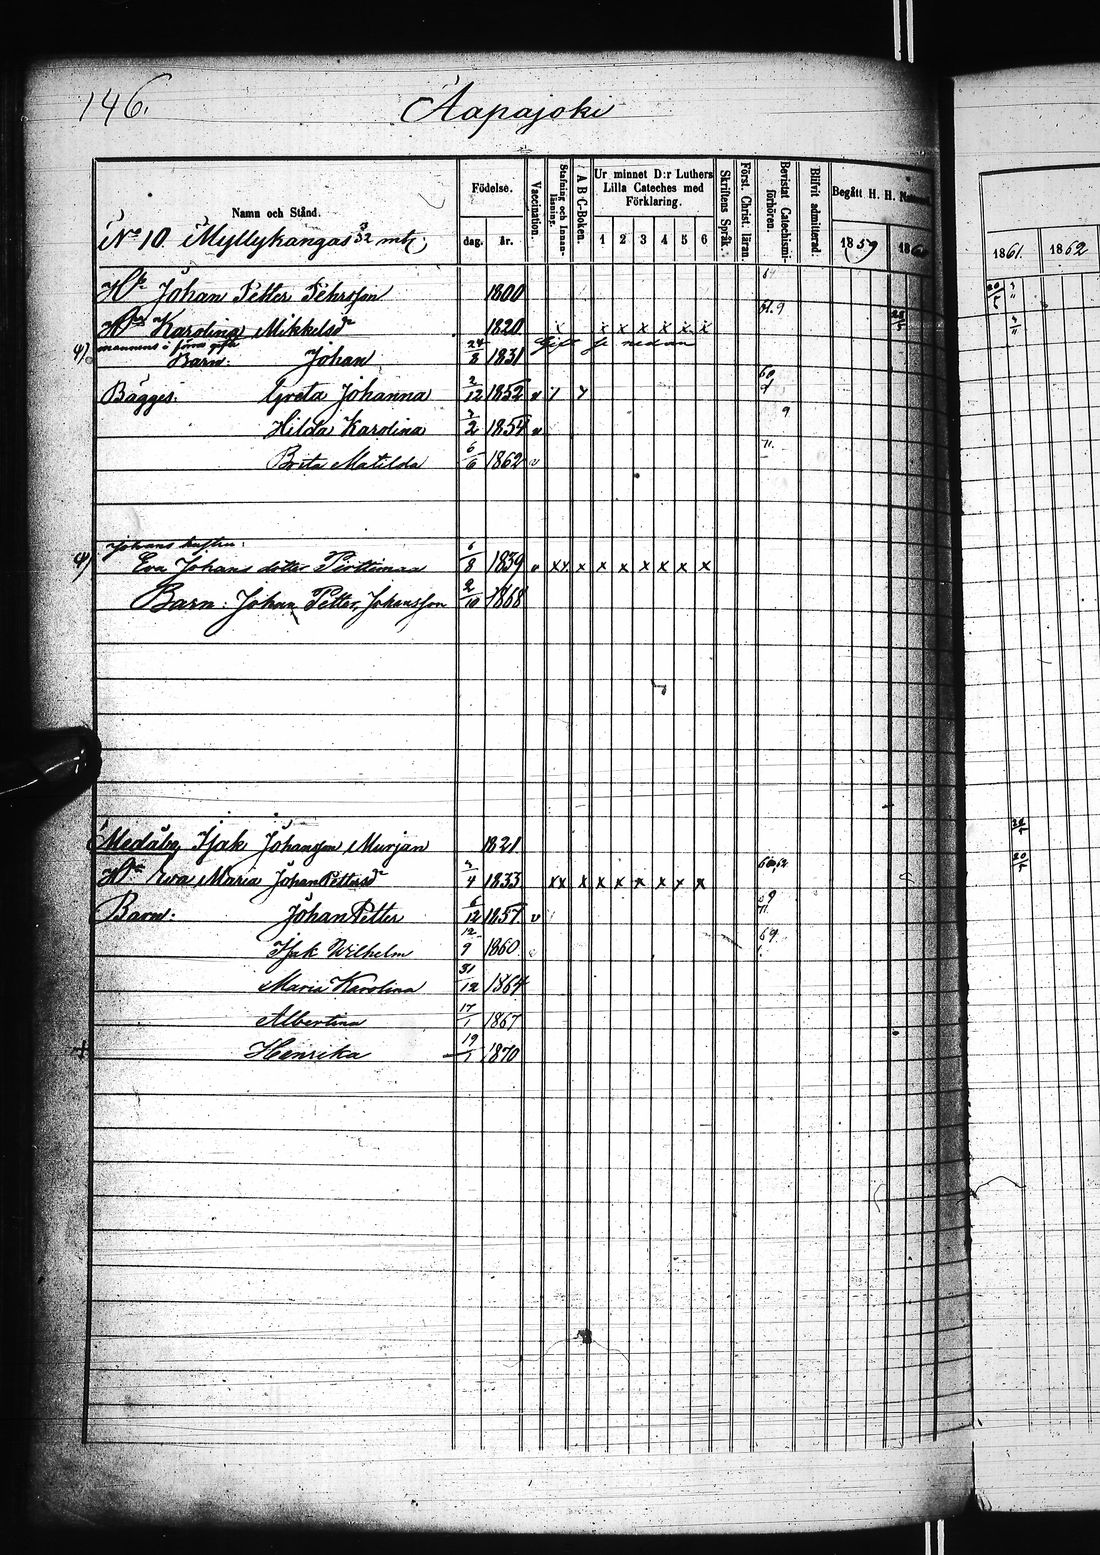 146.
Aapajoki
Namn och Stånd.
Födelse.
dag. år.
Vaccination.
Stafning och Innanläsning.
A B C-Boken.
Ur minnet D:r Luthers Lilla Cateches med Förklaring.
1 2 3 4 5 6
Skriftens Språk.
Först. Christ. läran.
Bevistat Catechismiförhören.
Blifvit admitterad.
Begått H. H.
1859 186
1861. 1862
No 10. Myllykangas mtl,
Johan Petter Pehrsson 1800
Karolina Mikkelsdr 1820 x x x x x x x
mannens i förra gifte
Barn: Johan 24/8 1831 Gift se nedan
Bägges: Greta Johanna 2/12 1852 v
Hilda Karolina 1854 v 9
Brita Matilda 6/6 1862 v
Johans hustru:
Eva Johans dotter 6/8 1839 v xx x x x x x x x
Barn: Johan Petter Johansson 2/10 1868
Isak Johansson Murjan 1821
Eva Maria Johan Pettersdr 1833 xx x x x x x x x
Barn: Johan Petter 6/12 1857 v
Isak Wilhelm 12/9 1860 69
Maria Karolina 31/12 1864
Albertina 17/1 1867
+ Henrika 19/1 1870